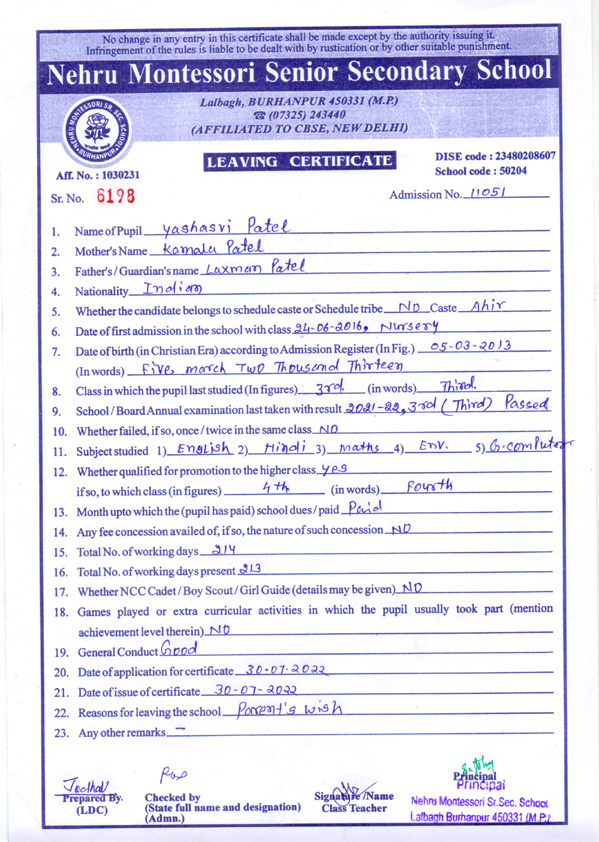 No change in any entry in this certificate shall be made except by the authority issuing it.
Infringement of the rules is liable to be dealt with by rustication or by other suitable punishment.
Nehru Montessori Senior Secondary School
Lalbagh, BURHANPUR 450331 (M.P.)
☎ (07325) 243440
(AFFILIATED TO CBSE, NEW DELHI)
NEHRU MONTESSORI SR. SEC. SCHOOL
BURHANPUR
LEAVING CERTIFICATE
DISE code : 23480208607
School code : 50204
Aff. No. : 1030231
Sr. No. 6198
Admission No. 11051
1. Name of Pupil Yashasvi Patel
2. Mother's Name Kamala Patel
3. Father's / Guardian's name Laxman Patel
4. Nationality Indian
5. Whether the candidate belongs to schedule caste or Schedule tribe NO Caste Ahir
6. Date of first admission in the school with class 24-06-2016, Nursery
7. Date of birth (in Christian Era) according to Admission Register (In Fig.) 05-03-2013
(In words) Five, march Two Thousand Thirteen
8. Class in which the pupil last studied (In figures) 3rd. (in words) Third.
9. School / Board Annual examination last taken with result 2021-22, 3rd (Third) Passed
10. Whether failed, if so, once / twice in the same class NO
11. Subject studied 1) English 2) Hindi 3) maths 4) Env. 5) G.computor
12. Whether qualified for promotion to the higher class yes
if so, to which class (in figures) 4th (in words) Fourth
13. Month upto which the (pupil has paid) school dues / paid Paid
14. Any fee concession availed of, if so, the nature of such concession NO
15. Total No. of working days 214
16. Total No. of working days present 213
17. Whether NCC Cadet / Boy Scout / Girl Guide (details may be given) NO
18. Games played or extra curricular activities in which the pupil usually took part (mention
achievement level therein) NO
19. General Conduct Good
20. Date of application for certificate 30-07-2022
21. Date of issue of certificate 30-07-2022
22. Reasons for leaving the school Parent's wish
23. Any other remarks —
Prepared By.
(LDC)
Checked by
(State full name and designation)
(Admn.)
Signature /Name
Class Teacher
Principal
Principal
Nehru Montessori Sr.Sec. School
Lalbagh Burhanpur 450331 (M.P.)